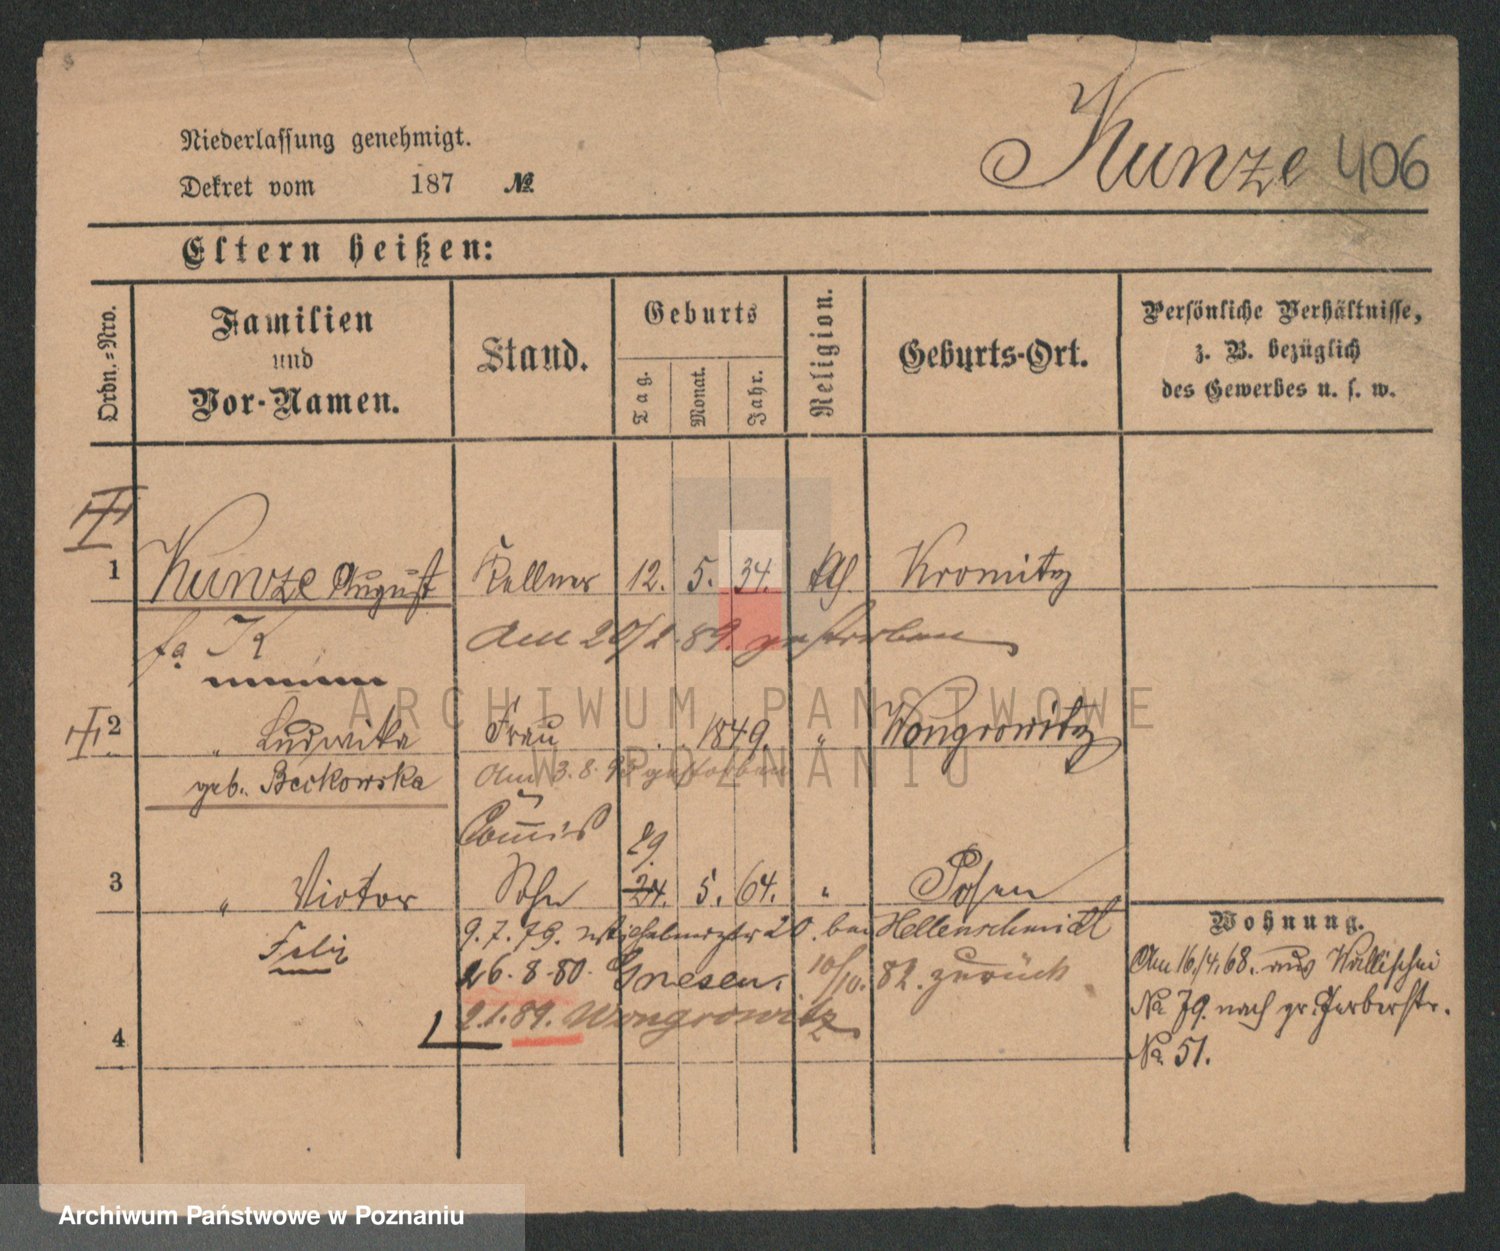 Niederlassung genehmigt.
Dekret vom 187 №
Kunze 406
Eltern heißen:
Ordn.-Nro.
Familien und Vor-Namen.
Stand.
Geburts
Tag.
Monat.
Jahr.
Religion.
Geburts-Ort.
Persönliche Verhältnisse,
z. B. bezüglich
des Gewerbes u. s. w.
1 Kunze August Kellner 12. 5. 34. Kromitz
K Am 20/2. 89. gestorben
2 " Ludwika Frau 1849. " Wongrowitz
geb. Beckowska Am 3. 8. 93 gestorben
Commis 29.
3 " Victor Sohn 24. 5. 64. " Posen
Felix
9. 7. 79. 20. bei Hellenschmidt
26. 8. 80. Gnesen. 10/10. 82. zurück
2. 1. 89. Wongrowitz
4
Wohnung.
Am 16./4. 68. aus Wallischei
No 79. nach gr. Gerberstr.
No. 51.
ARCHIWUM PAŃSTWOWE
W POZNANIU
Archiwum Państwowe w Poznaniu